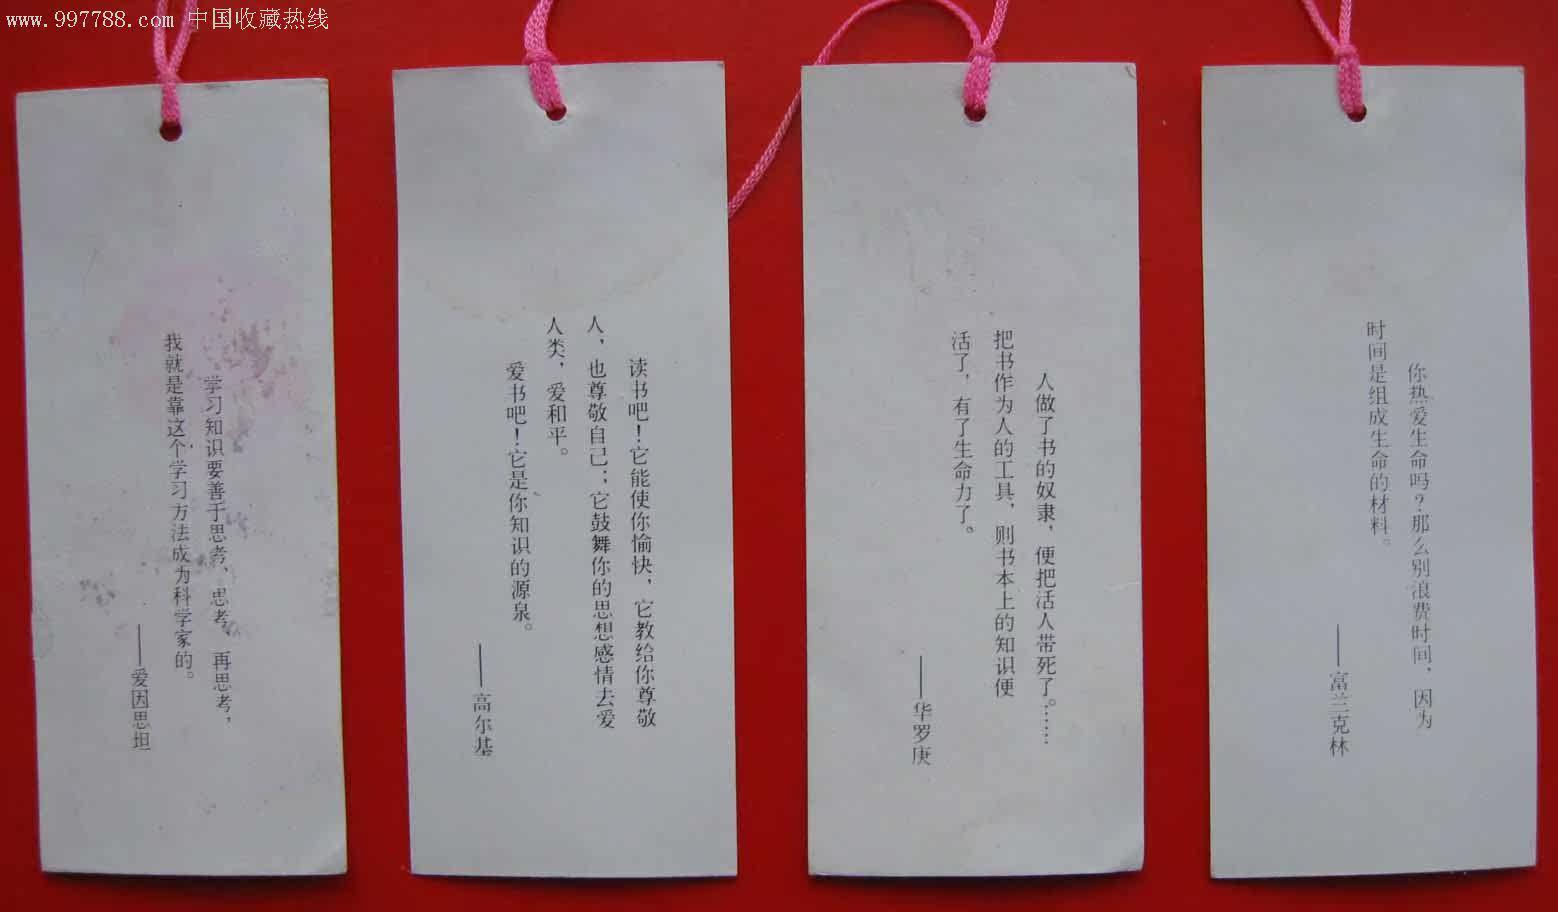 www.997788.com 中国收藏热线
学习知识要善于思考、思考、再思考，
我就是靠这个学习方法成为科学家的。
——爱因思坦
读书吧！它能使你愉快，它教给你尊敬
人，也尊敬自己；它鼓舞你的思想感情去爱
人类，爱和平。
爱书吧！它是你知识的源泉。
——高尔基
人做了书的奴隶，便把活人带死了。……
把书作为人的工具，则书本上的知识便
活了，有了生命力了。
——华罗庚
你热爱生命吗？那么别浪费时间，因为
时间是组成生命的材料。
——富兰克林